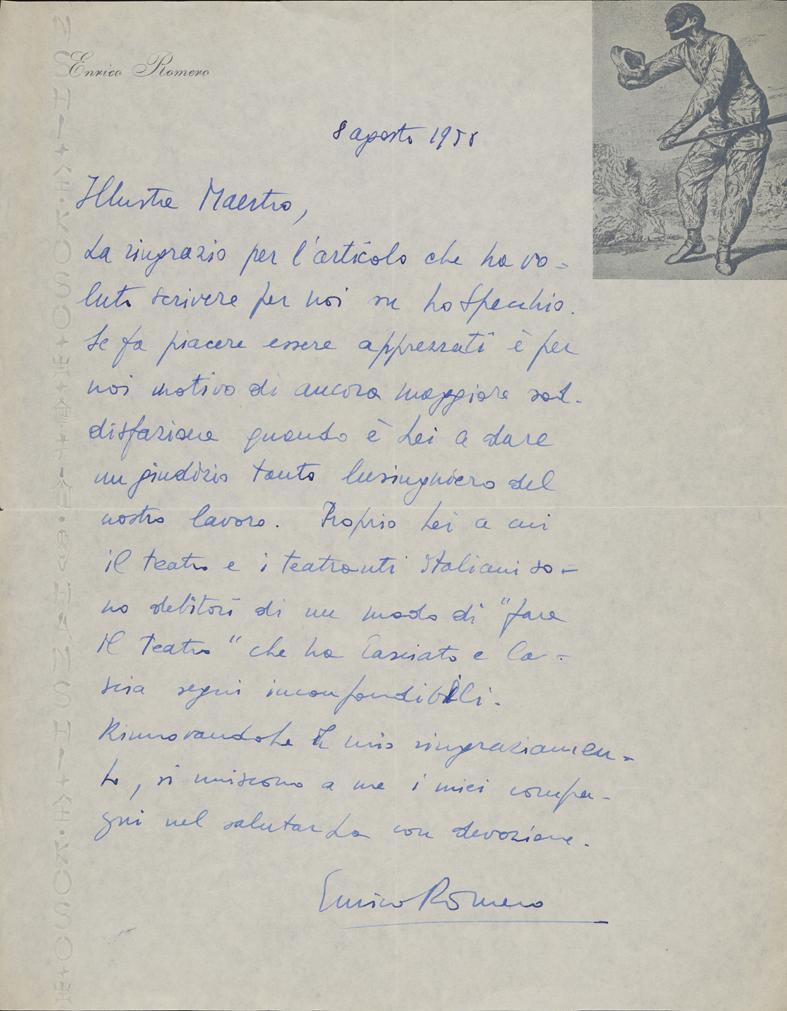 Enrico Romero
8 agosto 1958
Illustre Maestro,
La ringrazio per l'articolo che ha vo=
luto scrivere per noi su Lo Specchio.
Se fa piacere essere apprezzati è per
noi motivo di ancora maggiore sod-
disfazione quando è Lei a dare
un giudizio tanto lusinghiero del
nostro lavoro. Proprio Lei a cui
il teatro e i teatranti italiani so-
no debitori di un modo di "fare
il Teatro" che ha lasciato e la-
scia segni inconfondibili.
Rinnovandole il mio ringraziamen-
to, si uniscono a me i miei compa-
gni nel salutarLa con devozione.
Enrico Romero